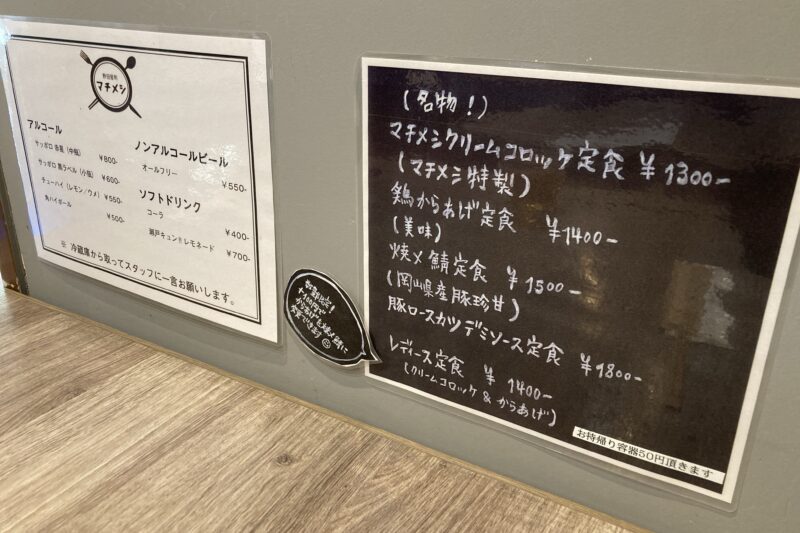 マチメシ
アルコール
サッポロ 赤星（中瓶） ¥800-
サッポロ 黒ラベル（小瓶） ¥600-
チューハイ（レモン/ウメ） ¥550-
角ハイボール ¥500-
ノンアルコールビール
オールフリー ¥550-
ソフトドリンク
コーラ ¥400-
瀬戸キュン!!レモネード ¥700-
※ 冷蔵庫から取ってスタッフに一言お願いします。
数量限定！
+100円で
からあげを焼〆鯖に
変更できます
(名物！)
マチメシクリームコロッケ定食 ¥1300-
(マチメシ特製)
鶏からあげ定食 ¥1400-
(美味)
焼〆鯖定食 ¥1500-
(岡山県産豚珍甘)
豚ロースカツデミソース定食 ¥1800-
レディース定食 ¥1400-
(クリームコロッケ & からあげ)
お持帰り容器50円頂きます